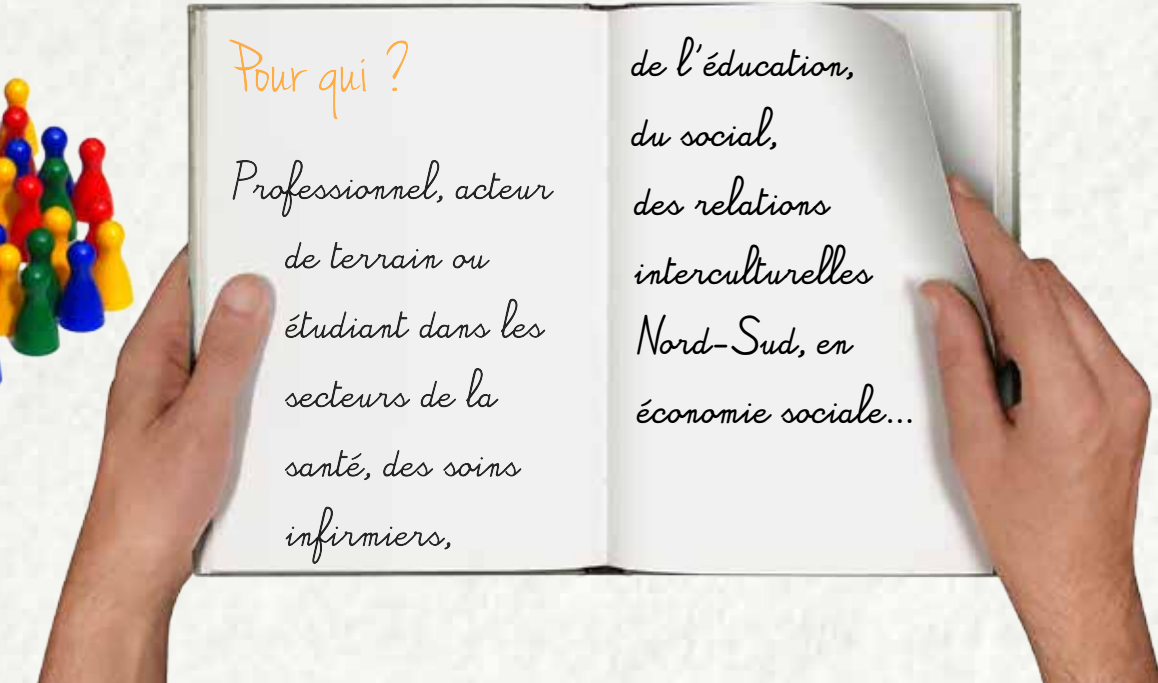 Pour qui ?
Professionnel, acteur
de terrain ou
étudiant dans les
secteurs de la
santé, des soins
infirmiers,
de l'éducation,
du social,
des relations
interculturelles
Nord-Sud, en
économie sociale...